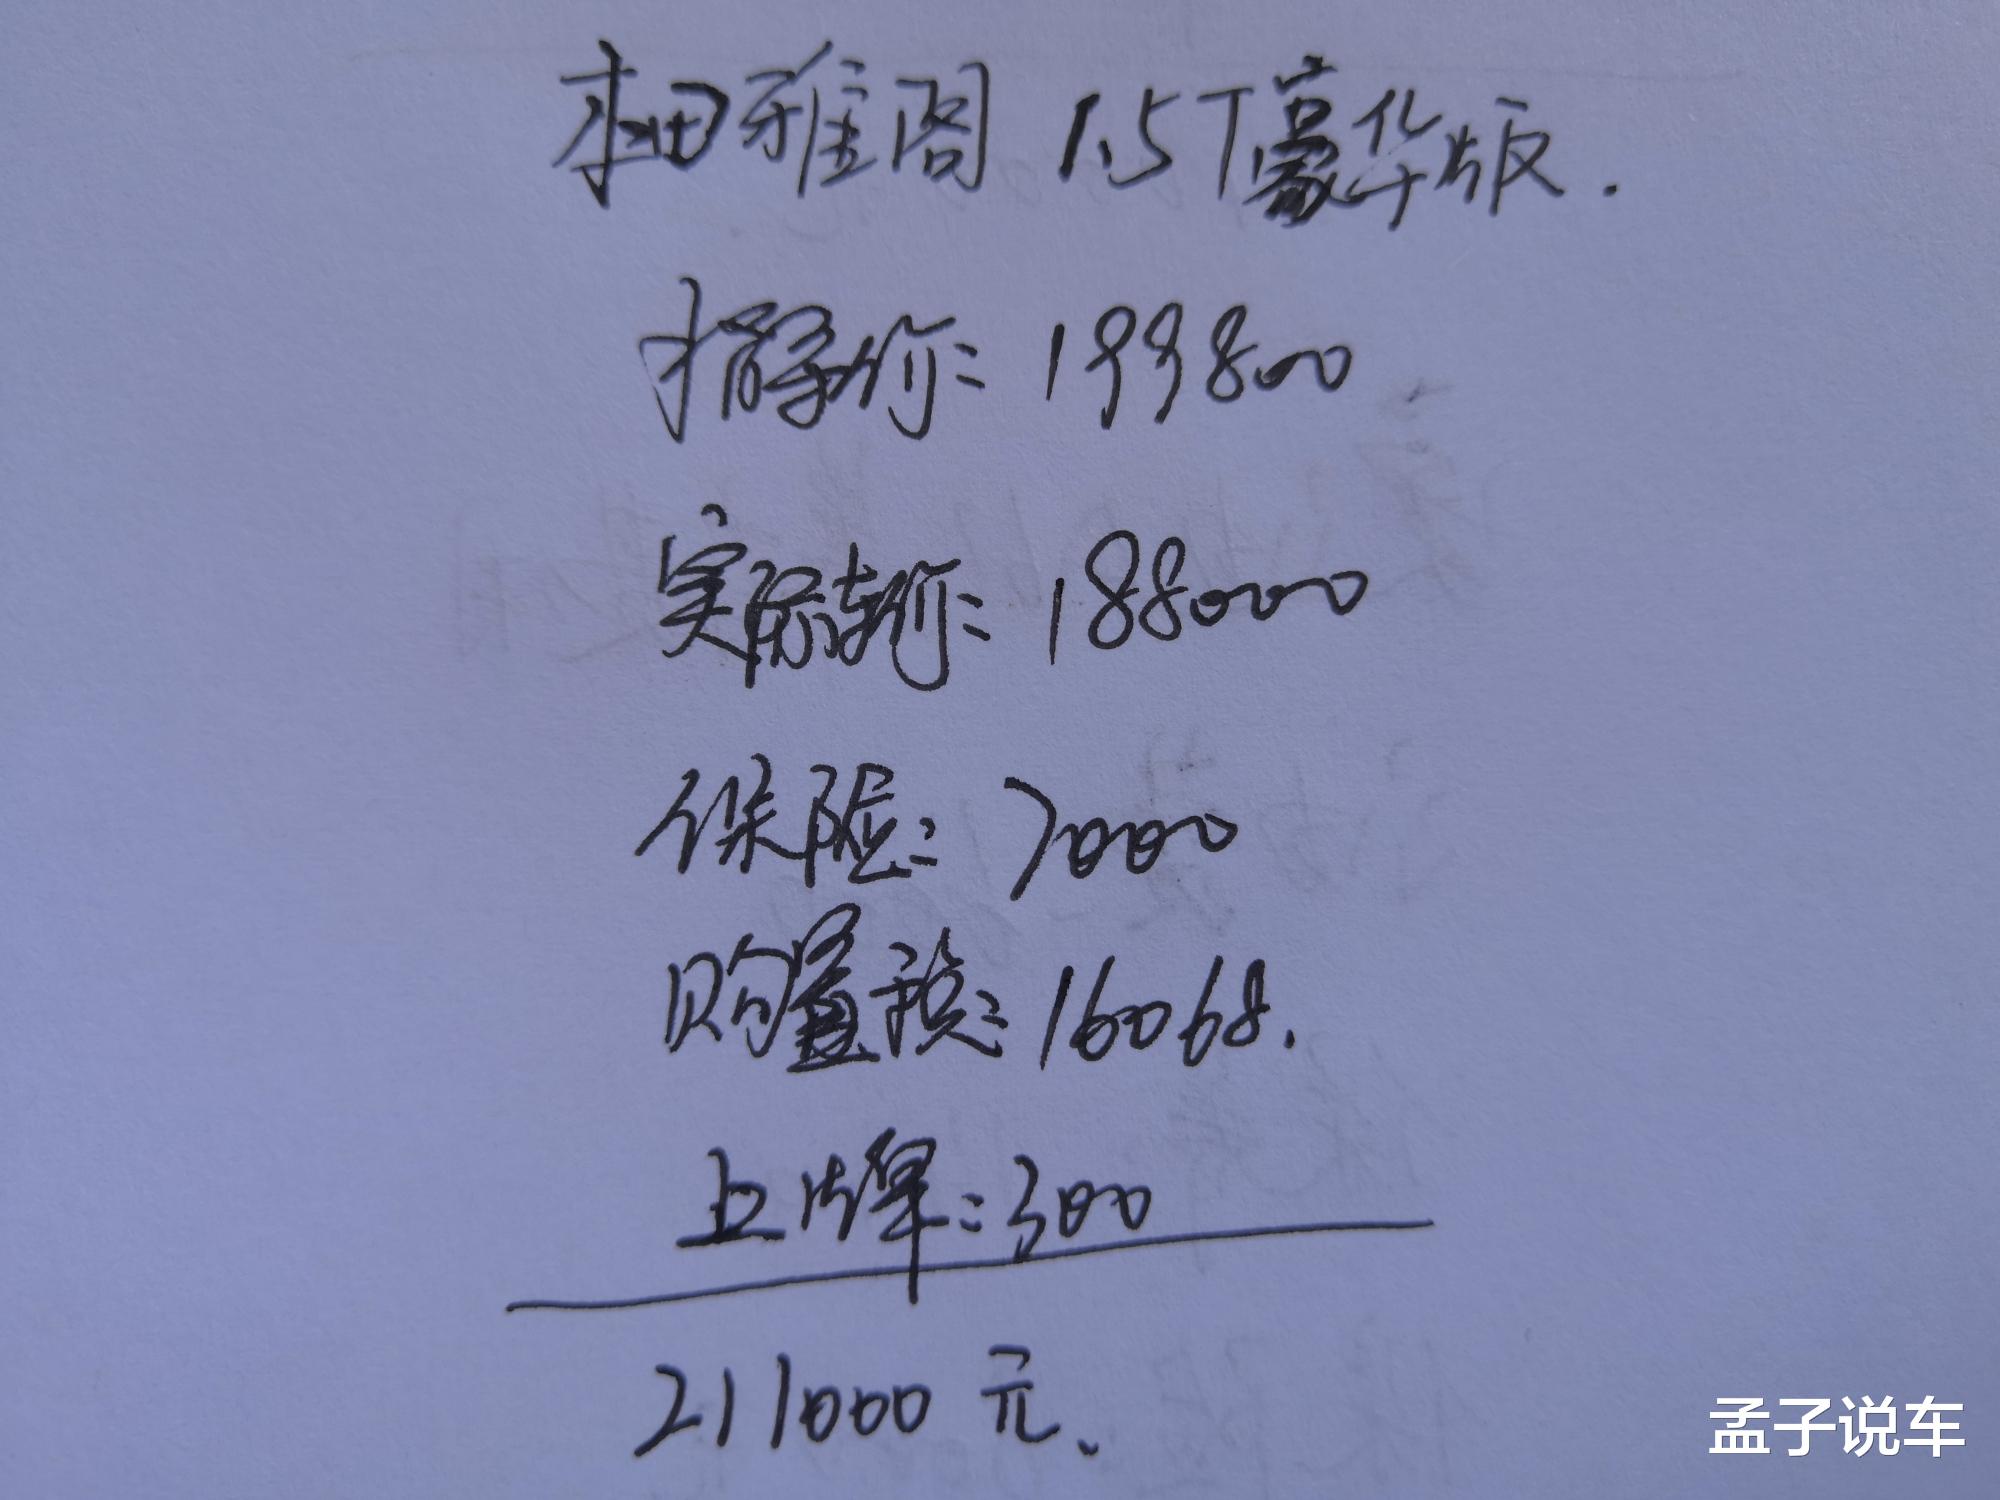 本田雅阁 1.5T豪华版.
指导价:199800
实际车价:188000
保险:7000
购置税:16068.
上牌:300
211000 元.
孟子说车